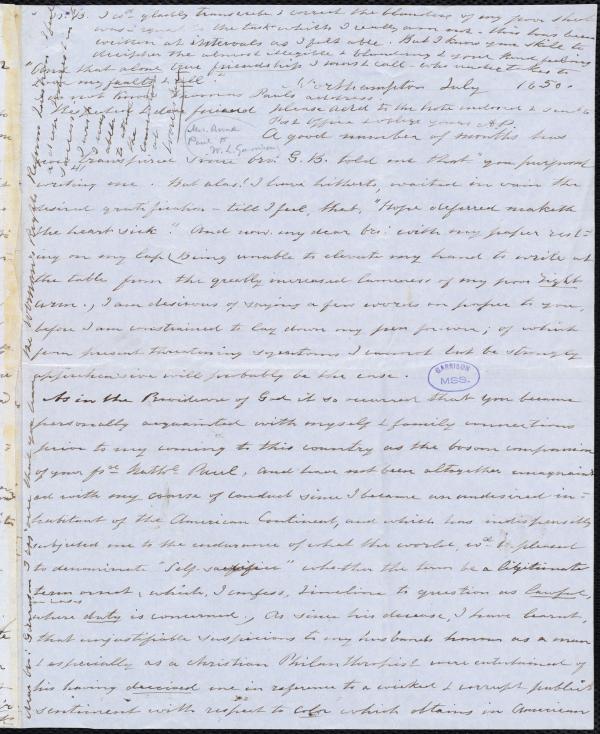 P.S. I wd gladly transcribe & correct the blunders of my poor sheet
was I equal to the task which I really am not - this has been
written at intervals as I felt able. But I know your skill to
decipher the above & illegible & blundering & your kind feelings
and that alone true friendship I must call - who could it lies to
my faults & all"
Northampton July 1850.
Respected & dear friend please add to the note enclosed & send to
Post Office & oblige yours A.P.
Mrs. Anne
Paul to
W. L. Garrison
A good number of months has
now transpired since bro. G. B. told me that "you purposed
writing me. But alas! I have hitherto waited in vain the
desired gratification - till I feel, that, "Hope deferred maketh
the heart sick." And now my dear bro: with my paper rest-
ing on my lap (Being unable to elevate my hand to write at
the table from the greatly increased lameness of my poor right
arm., I am desirous of saying a few words on paper to you,
before I am constrained to lay down my pen forever; of which
from present threatening symptoms I cannot but be strongly
apprehensive will probably be the case.
GARRISON
MSS.
As in the Providence of God it so occurred that you became
personally acquainted with myself & family connections
prior to my coming to this country as the bosom companion
of your frd. Nathl. Paul, and have not been altogether unacquaint
ed with my course of conduct since I became an undesired in-
habitant of the American Continent, and which has indispensibly
subjected me to the endurance of what the world, wd. be pleased
to denominate "Self-sacrifice" whether the term be a legitimate
term or not, which, I confess, I incline to question as lawful,
where duty is concerned, As since his decease, I have learnt,
that unjustifiable suspicions to my husbands honour as a man
& especially as a Christian Philanthropist were entertained of
his having deceived me in reference to a wicked & corrupt public
sentiment with respect to color which obtains in American